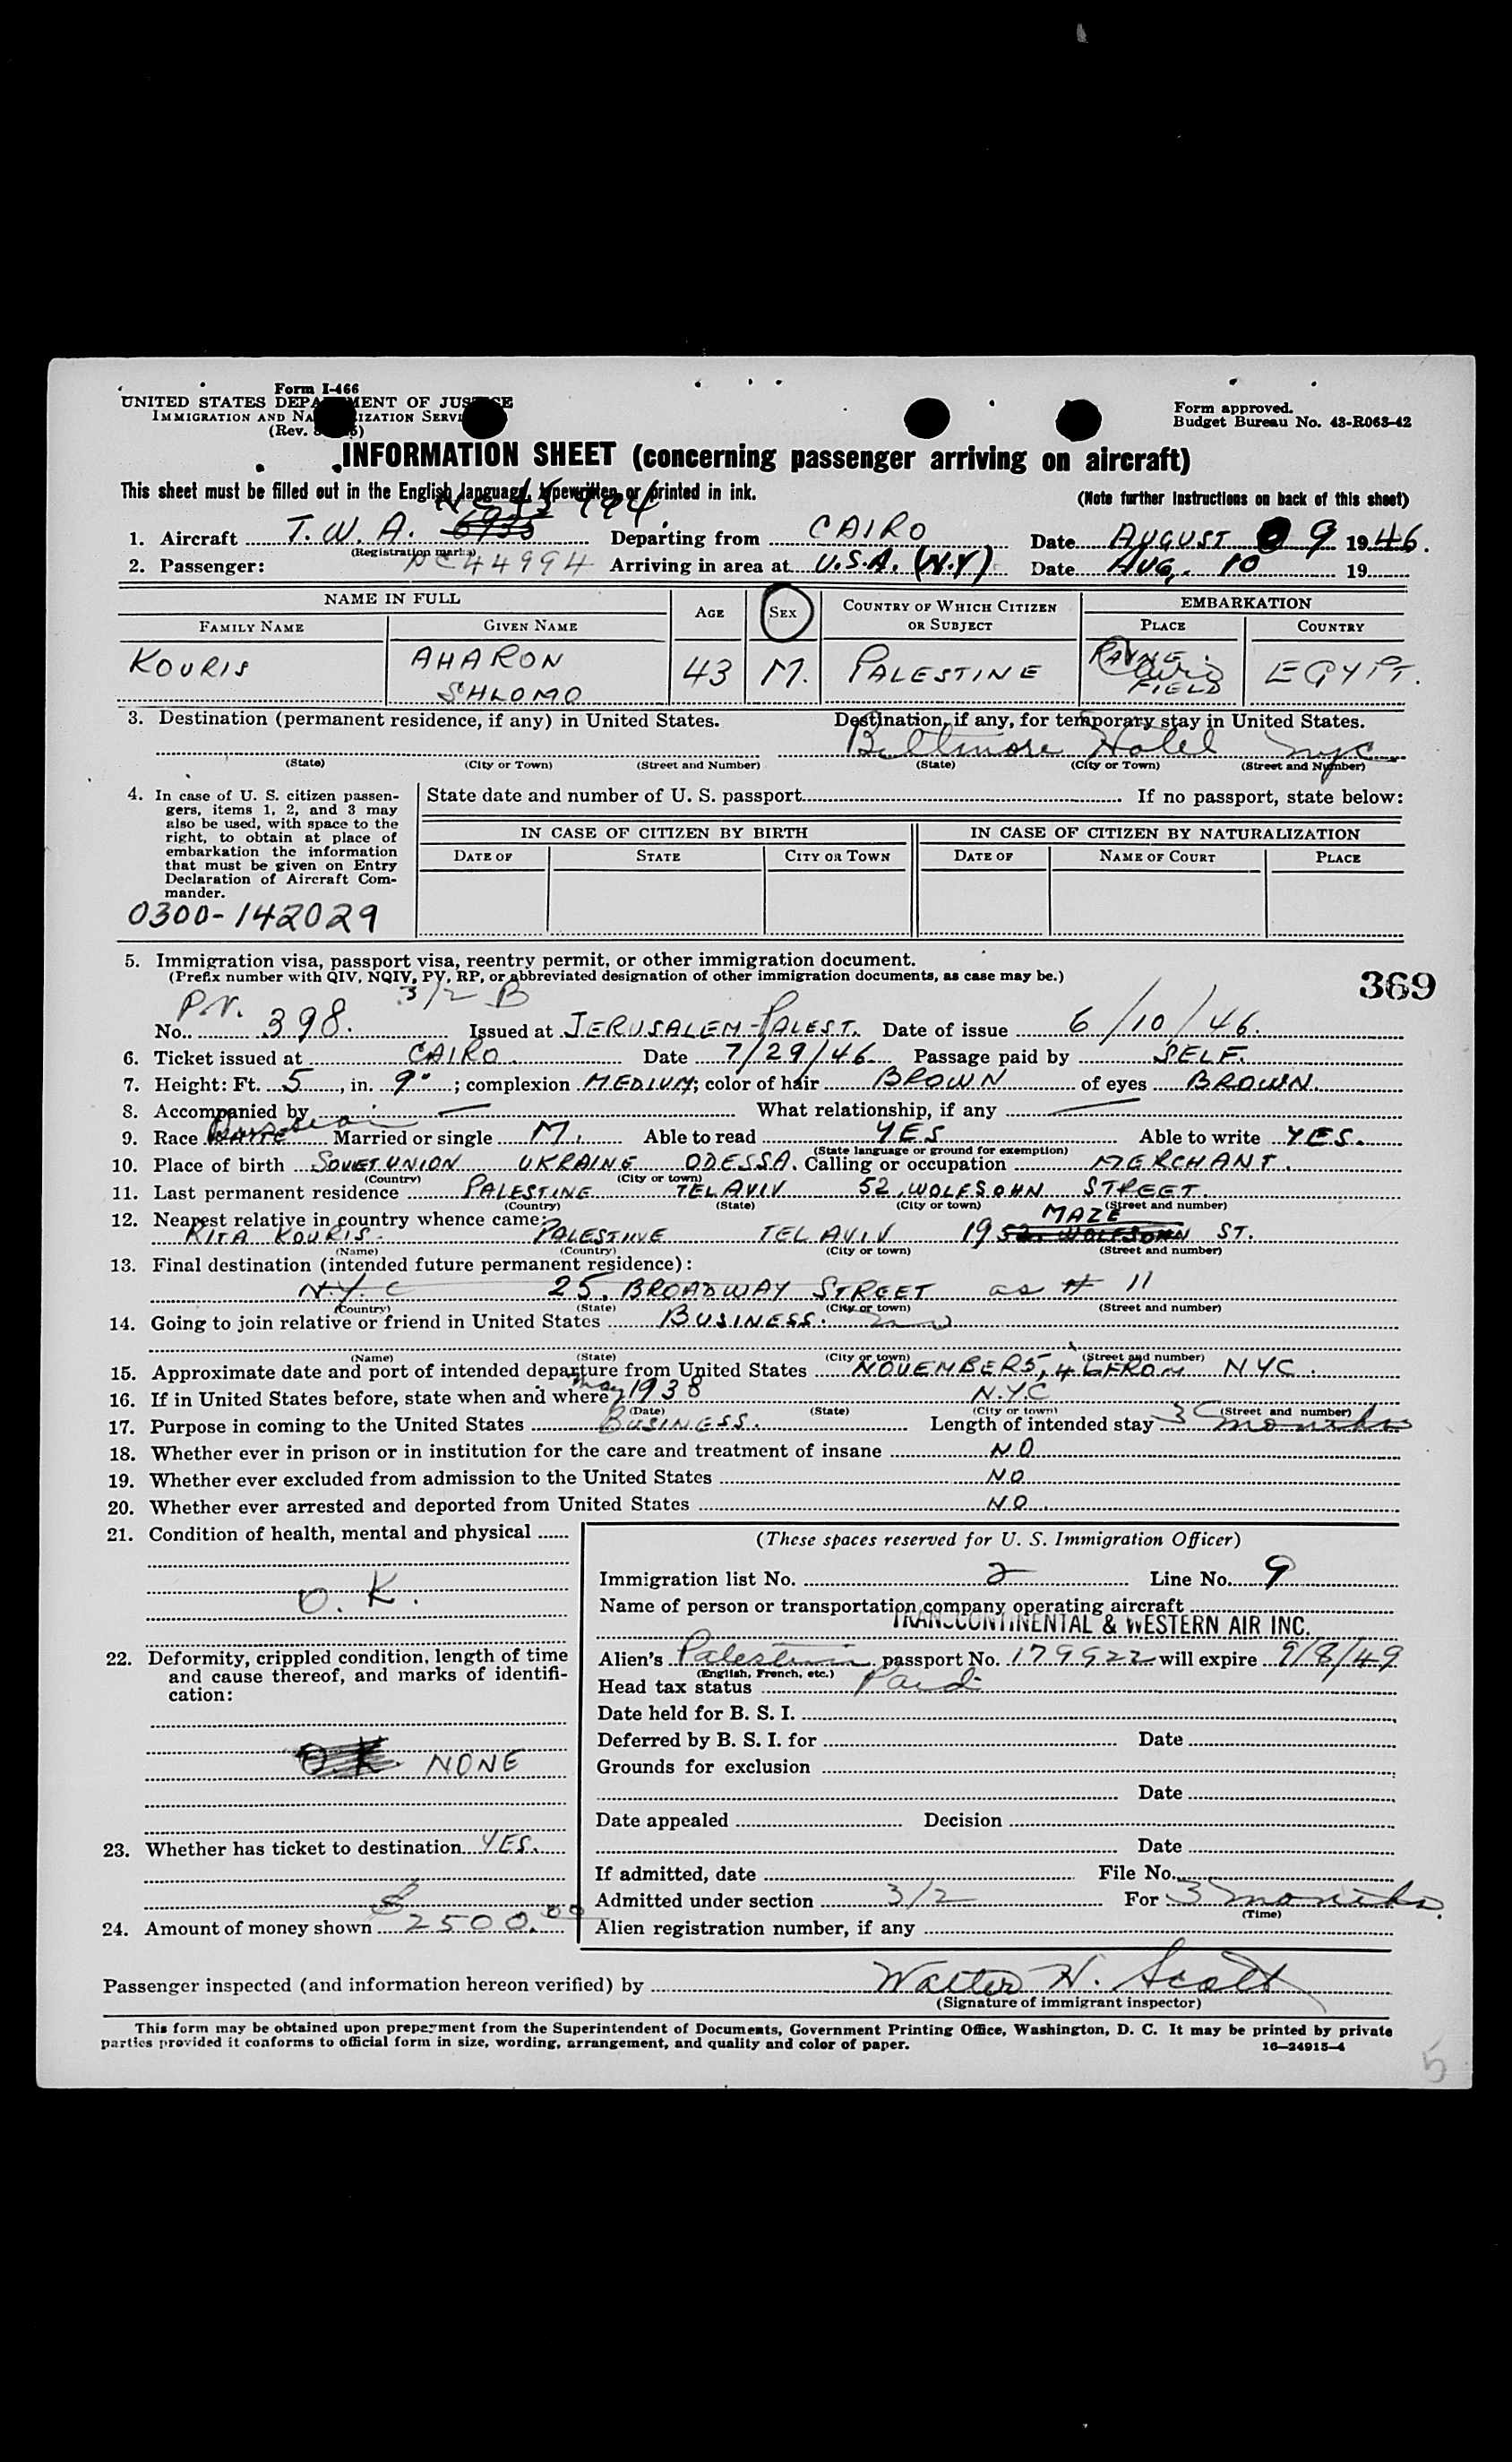 Form I-466
UNITED STATES DEPARTMENT OF JUSTICE
IMMIGRATION AND NATURALIZATION SERVICE
(Rev.
Form approved.
Budget Bureau No. 43-R063-42
INFORMATION SHEET (concerning passenger arriving on aircraft)
This sheet must be filled out in the English language, typewritten or printed in ink.
(Note further instructions on back of this sheet)
1. Aircraft T.W.A. Departing from CAIRO Date AUGUST 9 1946.
(Registration marks)
2. Passenger: NC44994 Arriving in area at U.S.A. (N.Y) Date AUG. 10 19
NAME IN FULL AGE SEX COUNTRY OF WHICH CITIZEN OR SUBJECT EMBARKATION
FAMILY NAME GIVEN NAME PLACE COUNTRY
KOURIS AHARON SHLOMO 43 M. PALESTINE PAYNE FIELD Cairo EGYPT.
3. Destination (permanent residence, if any) in United States. Destination, if any, for temporary stay in United States.
Biltmore Hotel NYC
(State) (City or Town) (Street and Number) (State) (City or Town) (Street and Number)
4. In case of U. S. citizen passen-
gers, items 1, 2, and 3 may
also be used, with space to the
right, to obtain at place of
embarkation the information
that must be given on Entry
Declaration of Aircraft Com-
mander.
0300-142029
State date and number of U. S. passport If no passport, state below:
IN CASE OF CITIZEN BY BIRTH IN CASE OF CITIZEN BY NATURALIZATION
DATE OF STATE CITY OR TOWN DATE OF NAME OF COURT PLACE
5. Immigration visa, passport visa, reentry permit, or other immigration document.
(Prefix number with QIV, NQIV, PV, RP, or abbreviated designation of other immigration documents, as case may be.)
369
P.V. 3/2 B
No. 398. Issued at JERUSALEM-PALEST. Date of issue 6/10/46.
6. Ticket issued at CAIRO. Date 7/29/46 Passage paid by SELF.
7. Height: Ft. 5, in. 9"; complexion MEDIUM; color of hair BROWN of eyes BROWN.
8. Accompanied by — What relationship, if any —
9. Race Married or single M. Able to read YES Able to write YES.
(State language or ground for exemption)
10. Place of birth SOVIET UNION UKRAINE ODESSA. Calling or occupation MERCHANT.
(Country) (City or town)
11. Last permanent residence PALESTINE TEL AVIV 52, WOLFSOHN STREET
(Country) (State) (City or town) (Street and number)
12. Nearest relative in country whence came:
MAZE
RITA KOURIS. PALESTINE TEL AVIV 19 52 WOLFSOHN ST.
(Name) (Country) (City or town) (Street and number)
13. Final destination (intended future permanent residence):
N.Y.C 25, BROADWAY STREET as # 11
(Country) (State) (City or town) (Street and number)
14. Going to join relative or friend in United States BUSINESS.
(Name) (State) (City or town) (Street and number)
15. Approximate date and port of intended departure from United States NOVEMBER 5, 46 FROM NYC.
16. If in United States before, state when and where May 1938 N.Y.C
(Date) (State) (City or town) (Street and number)
17. Purpose in coming to the United States BUSINESS. Length of intended stay 3 months
18. Whether ever in prison or in institution for the care and treatment of insane NO
19. Whether ever excluded from admission to the United States NO
20. Whether ever arrested and deported from United States NO.
21. Condition of health, mental and physical
O.K.
22. Deformity, crippled condition, length of time
and cause thereof, and marks of identifi-
cation:
O.K. NONE
23. Whether has ticket to destination YES.
24. Amount of money shown $2500.00
(These spaces reserved for U. S. Immigration Officer)
Immigration list No. 2 Line No. 9
Name of person or transportation company operating aircraft
TRANSCONTINENTAL & WESTERN AIR INC.
Alien's Palestinian passport No. 179922 will expire 9/8/49
(English, French, etc.)
Head tax status Paid
Date held for B. S. I.
Deferred by B. S. I. for Date
Grounds for exclusion
Date
Date appealed Decision
Date
If admitted, date File No.
Admitted under section 3/2 For 3 months.
(Time)
Alien registration number, if any
Passenger inspected (and information hereon verified) by Walter H. Scott
(Signature of immigrant inspector)
This form may be obtained upon prepayment from the Superintendent of Documents, Government Printing Office, Washington, D. C. It may be printed by private
parties provided it conforms to official form in size, wording, arrangement, and quality and color of paper.
16—24915-4
5